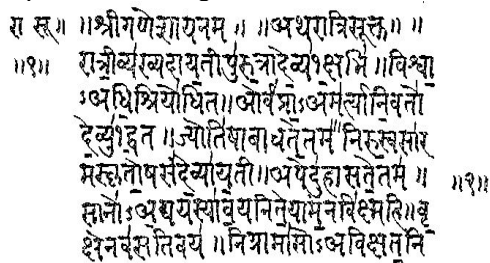 रा सू॥ ॥श्रीगणेशायनमः॥ ॥अथरात्रिसूक्त॥ ॥
॥१॥ रात्री॒व्य॑ख्यदाय॒तीपु॑रु॒त्रादे॒व्य१॒॑क्षभिः॑॥विश्वा॒
ऽअधि॒श्रियो॑धित॥ओर्व॑प्रा॒ऽअम॑र्त्यानि॒वतो॑
दे॒व्यु१॒॑द्वतः॑॥ज्योति॑षाबाधते॒तमः॑॥निरु॒स्वसा॑र
मस्कृतो॒षसं॑दे॒व्या॑य॒ती॥अपेदु॑हासते॒तमः॑॥ ॥२॥
सानो॑ऽअ॒द्ययस्या॑व॒यंनिते॒याम॒न्नवि॑क्ष्महि॥वृ॒
क्षेनव॑स॒तिंवयः॑॥निग्रामा॑सोऽअविक्षत॒नि